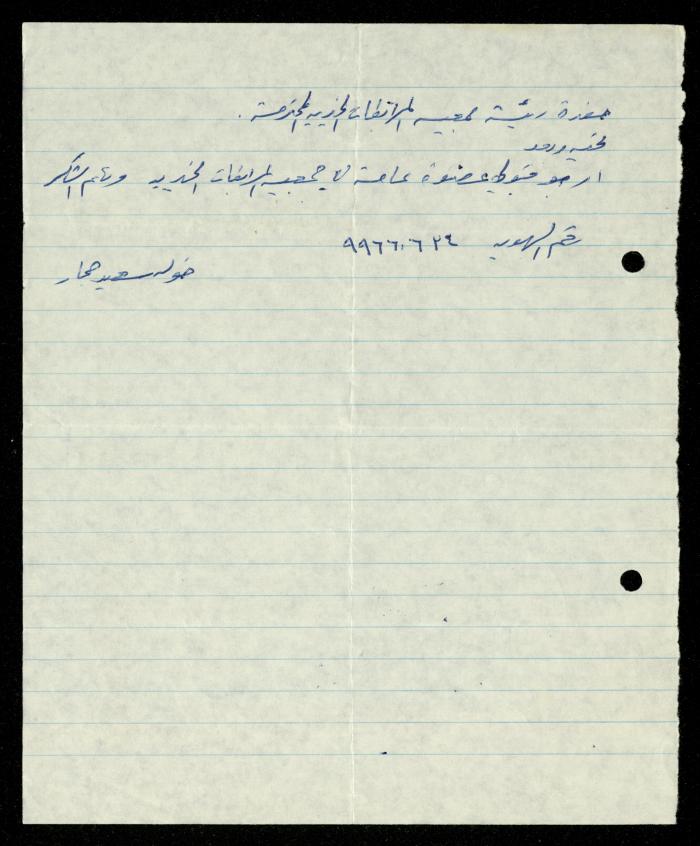 حضرة رئيسة جمعيه المرابطات الخيريه المحترمة .
تحيه وبعد
ارجو قبولي عضوة عاملة في جمعيه المرابطات الخيريه ولكم الشكر
رقم الهويه ٩٩٦٦٠٦٢٤
خوله سعيد حجار